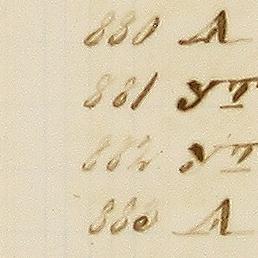 880 A
881 YT
882 YT
883 A